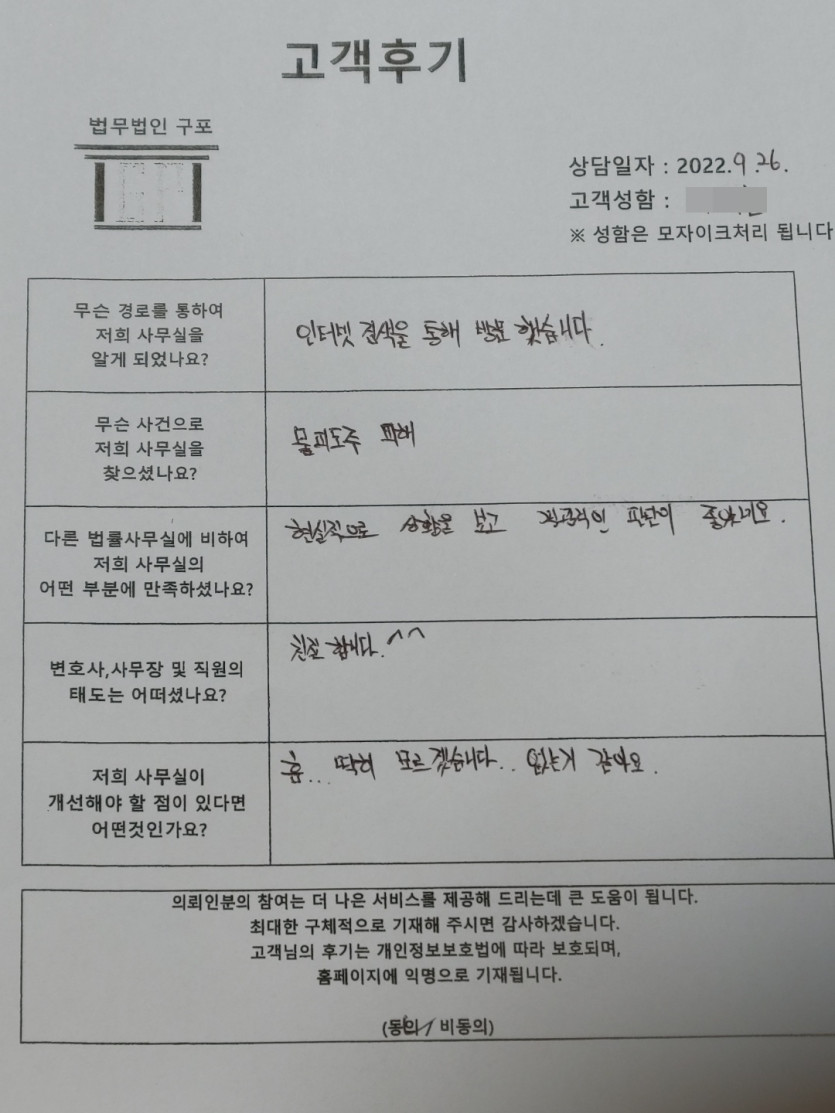 고객후기
법무법인 구포
상담일자 : 2022.9.26.
고객성함 :
※ 성함은 모자이크처리 됩니다
무슨 경로를 통하여
저희 사무실을
알게 되었나요?
인터넷 검색을 통해 방문 했습니다.
무슨 사건으로
저희 사무실을
찾으셨나요?
물피도주 피해
다른 법률사무실에 비하여
저희 사무실의
어떤 부분에 만족하셨나요?
현실적으로 상황을 보고 직관적인 판단이 좋았네요.
변호사,사무장 및 직원의
태도는 어떠셨나요?
친절 합니다.^^
저희 사무실이
개선해야 할 점이 있다면
어떤것인가요?
흠... 딱히 모르겠습니다.. 없는거 같아요.
의뢰인분의 참여는 더 나은 서비스를 제공해 드리는데 큰 도움이 됩니다.
최대한 구체적으로 기재해 주시면 감사하겠습니다.
고객님의 후기는 개인정보보호법에 따라 보호되며,
홈페이지에 익명으로 기재됩니다.
(동의/ 비동의)